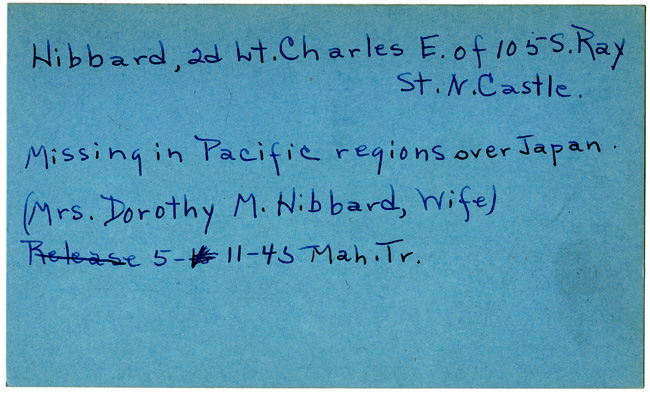 Hibbard, 2d Lt. Charles E. of 105 S. Ray
St. N. Castle.
Missing in Pacific regions over Japan.
(Mrs. Dorothy M. Hibbard, Wife)
Release 5-11-45 Mah. Tr.